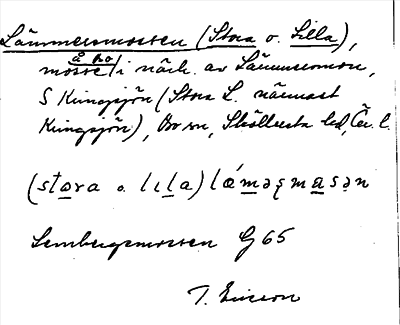 Lämmersmossen (Stora o. Lilla),
å bo
mosse i närh. av Lämmersmon,
S Kungsjön (Stora L. närmast
Kungsjön), Bo sn, Sköllersta hd, Öre. l.
(stɑra o lıla) lǽməʂmɑsən
Lembergsmossen G 65
T. Ericson